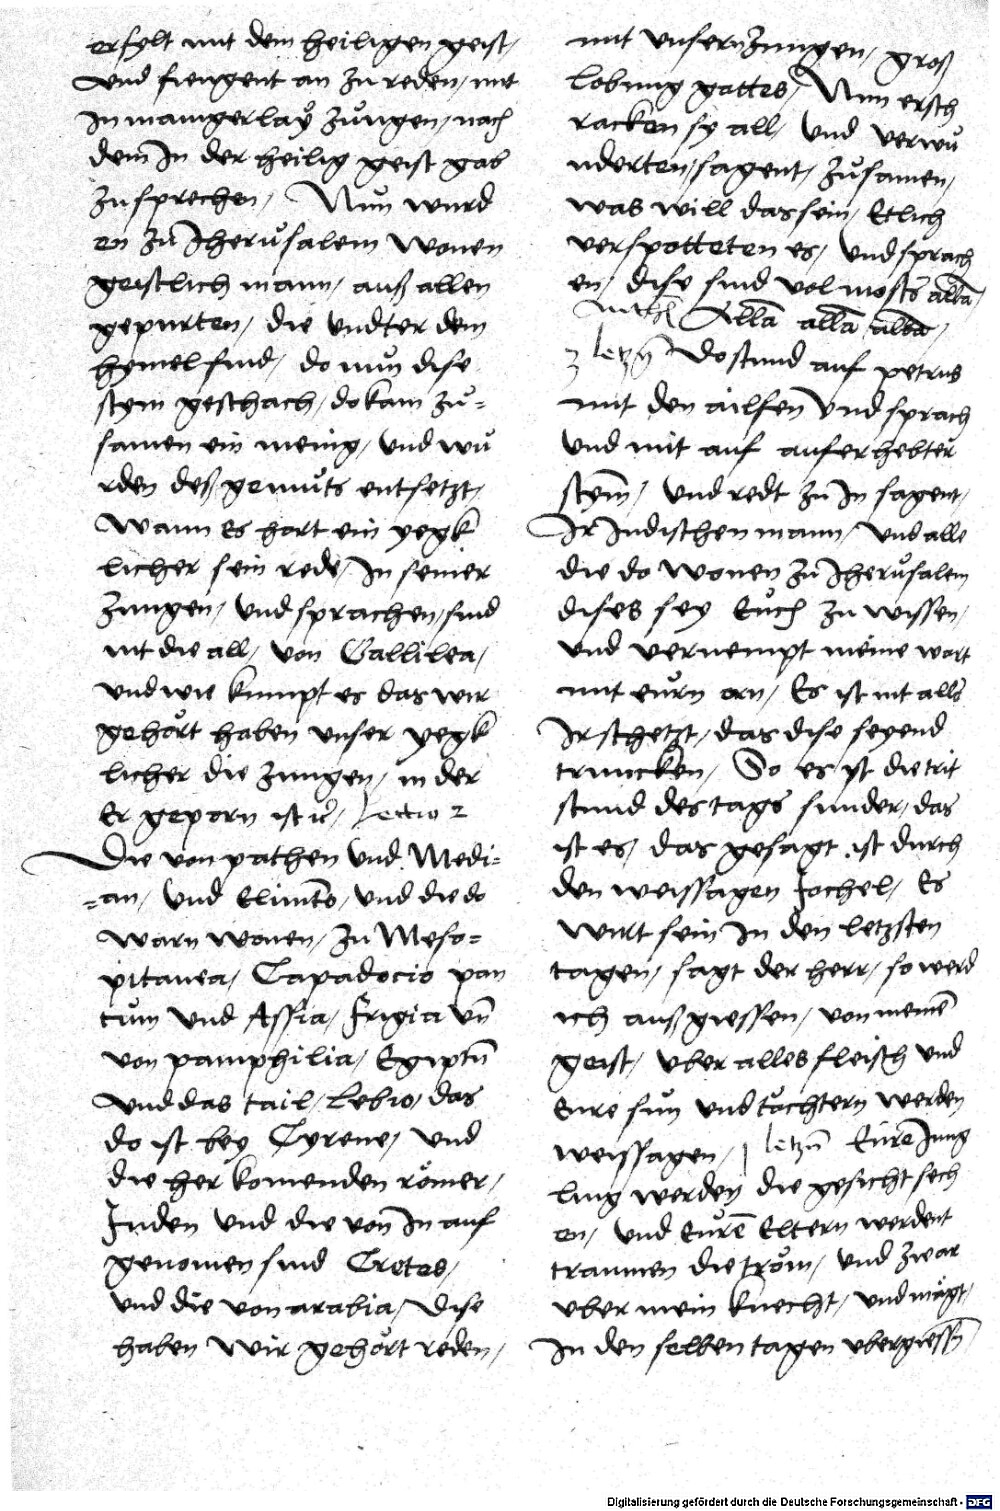 erfylt mit dem heiligen geist,
und fiengent an zu reden, mit
In manigerlaÿ zůngen, nach
dem In der heilig geist gab
zu sprechen, Nůn wurd
en zů Iherůsalem wonen
geistlich mann, auß allen
gepurten, die undter dem
hymel sind, do nůn dise
stym geschach, do kam zů-
samen ein menig, und wů
rden deß gemůts entsetzt,
Wann Es hort ein yegk
licher sein rede, In seiner
zungen, und sprachen, sind
nit die all, von Gallilea,
und wie kumpt es das wir
gehört haben unser yegk
licher die zungen, in der
Er geporn ist Lectio 2
Die von pathen und Medi-
-an, und Elimits, und die do
warn wonen, zu Meso-
pitanea, Capadocio pan
tům und Assia, Frigia vn̄
von pamphilia, Egiptn̄
und das tail, Lebio, das
do ist bey Cyrene, und
die her komenden römer,
Juden und die von In auf
genomen sind Cretes,
und die von arabia, dise
haben wir gehört reden,
mit unsern zungen, groß
lobung gottes, Nun ersch
racken sy all, und verwů
nderten, sagent, zůsamen,
was will das sein, Etlich
verspotteten es, und sprach
en, dise sind vol mosts alla,
Alla alla alla,
3 letzn̄ Do stund auf petrus
mit den ailfen und sprach
und mit auf auferhebter
stym̄, und redt zu In sagent,
Ir Indischen mann, und alle
die do wonen zu Iherůsalem
dises sey Eůch zu wissen,
und vernempt meine wort
mit eůrn orn, Es ist nit alls
Ir schetzt, das dise seyend
truncken, So es yst die trit
stund des tags sunder, das
ist es, das gesagt ist durch
den weissagen Jochel, Es
wirt sein In den letzsten
tagen, sagt der herr, so werd
ich auß giessen, von meinē
geist, uber alles fleisch und
Eure sůn und töchtern werden
weissagen, letzn̄ Eůre Jung
ling werden die gesicht sech
en, und Eůrē Eltern werdent
traumen die tröm, und zwar
uber mein knecht, und mägt,
In den selben tagen ubergiessn̄
Digitalisierung gefördert durch die Deutsche Forschungsgemeinschaft - DFG